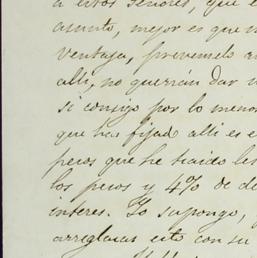 a estos señores, que e
asunto, mejor es que n
ventaja, prevemelo a
alli, no querrán dar
si consigo por lo menos
que has fijado alli es e
pesos que he traido les
los pesos y 4% de de
interes. Yo supongo,
arreglaras esto con su